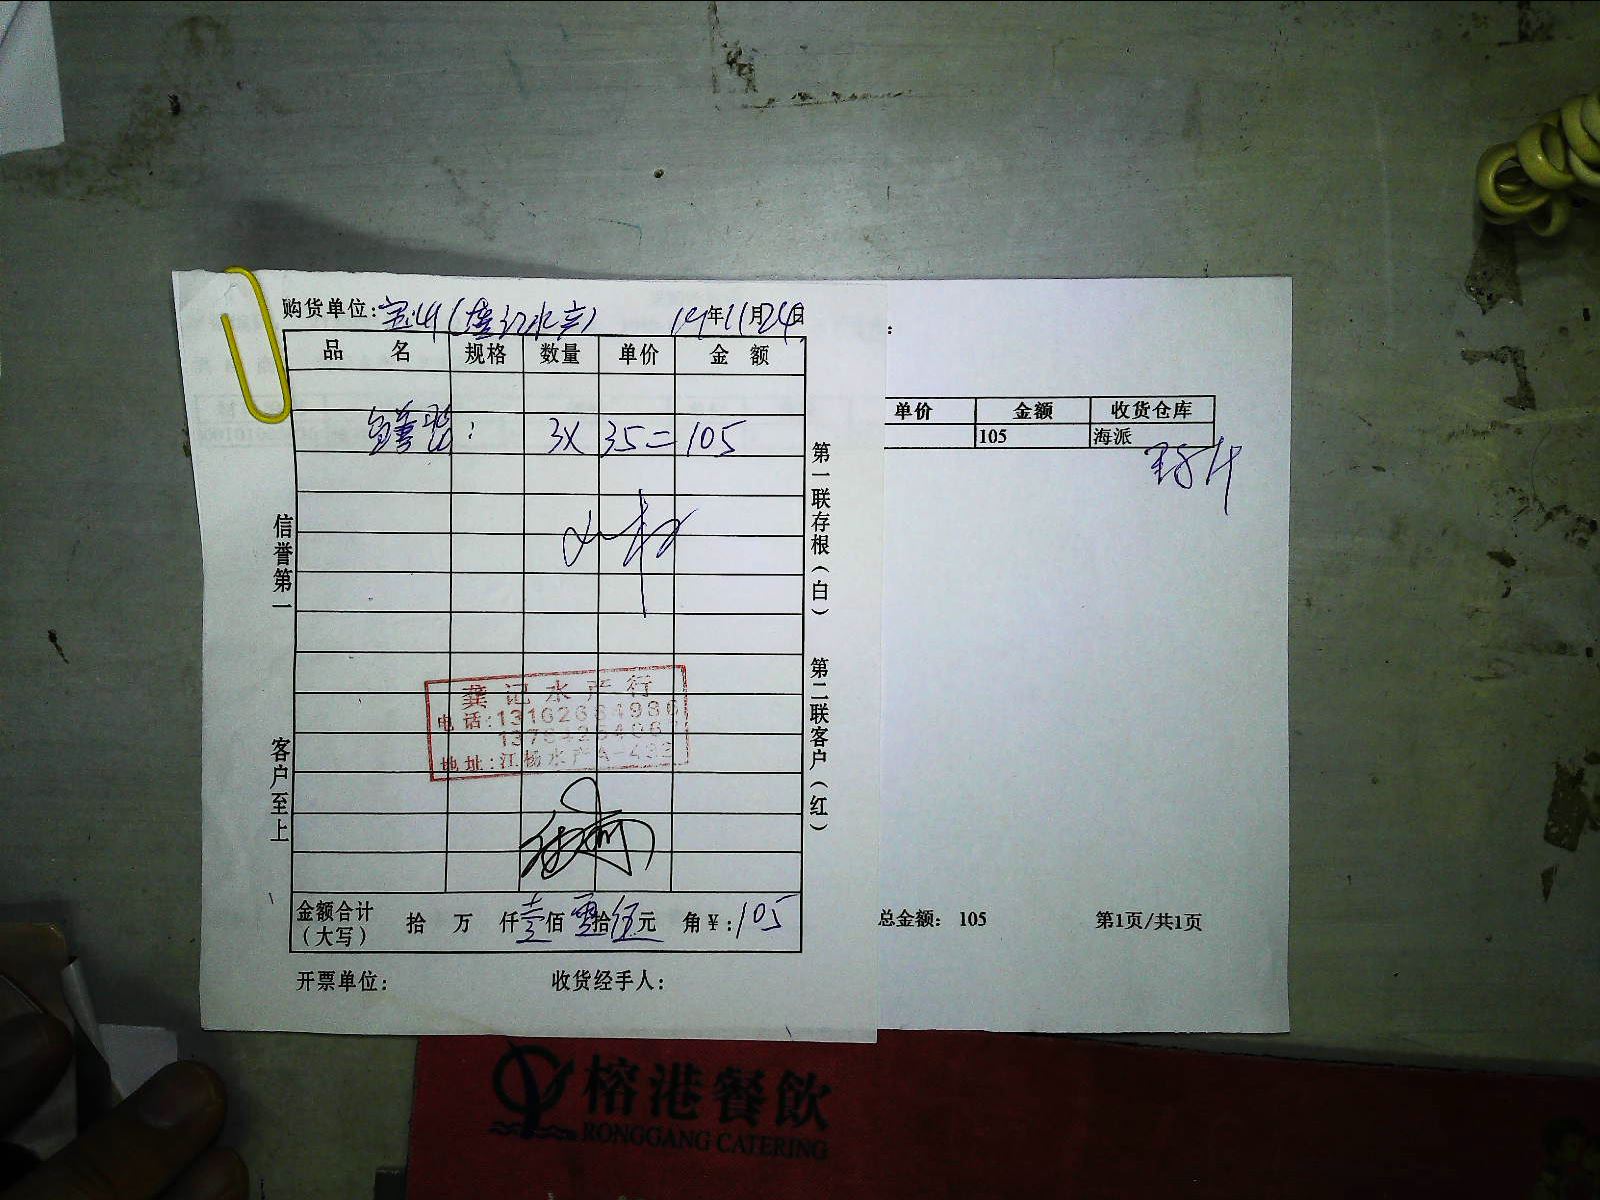 购货单位:
年11月24日
品 名 规格 数量 单价 金 额
3X 35=105
信誉第一 客户至上
第一联存根(白) 第二联客户(红)
龚记水产行
电话:
地址:江杨水产A-
金额合计(大写) 拾 万 仟壹佰零拾伍元 角¥:105
开票单位: 收货经手人:
单价 金额 收货仓库
105 海派
总金额: 105 第1页/共1页
榕港餐飲
RONGGANG CATERING